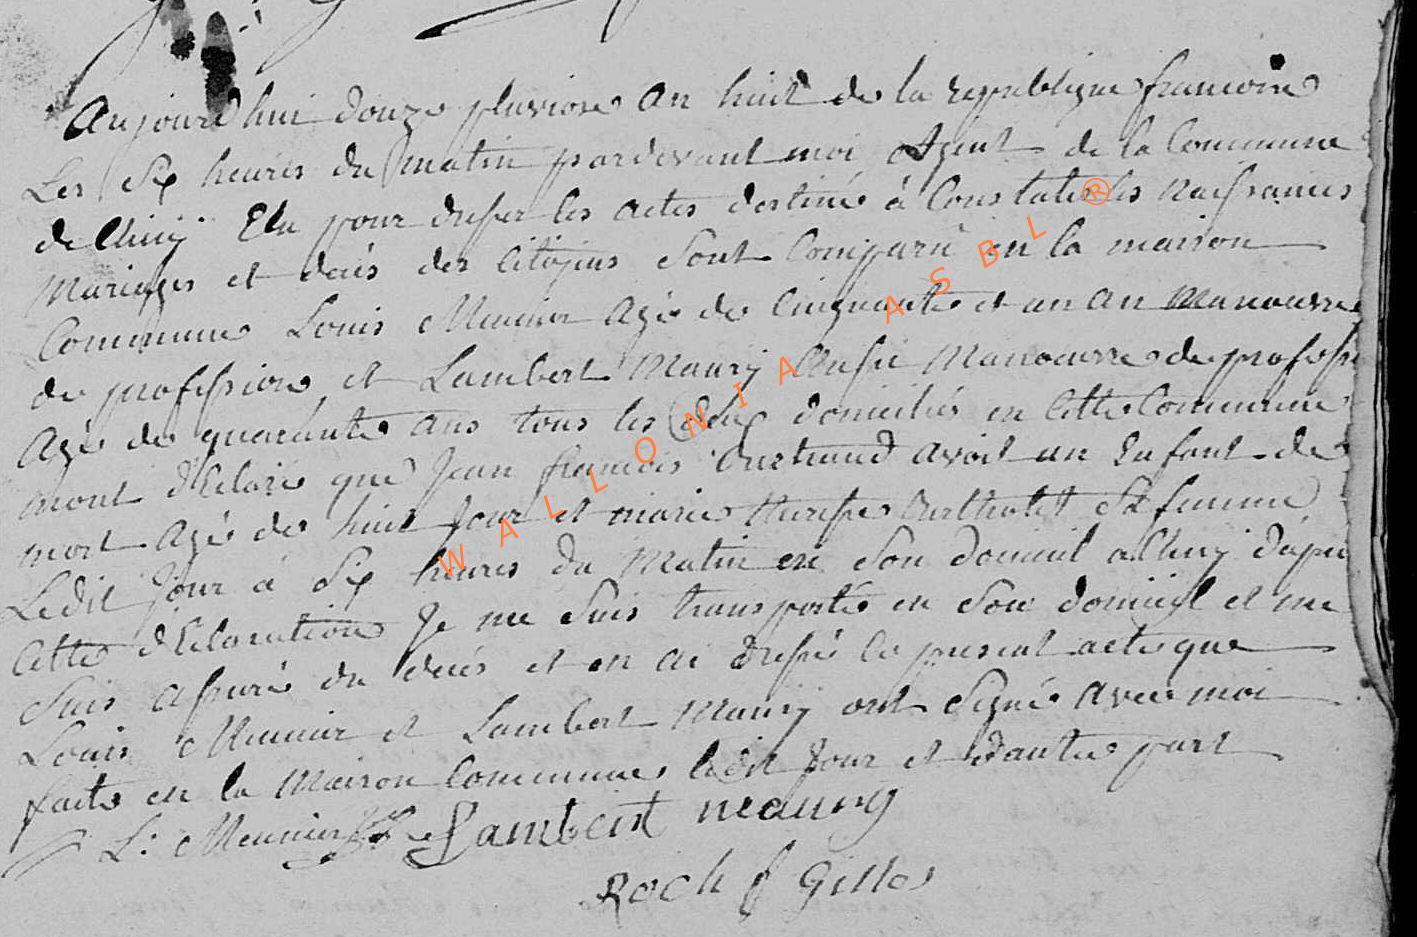 Aujourd'hui douze pluviose an huit de la republique francoise
Les Six heures du matin pardevant moi Agent de la Commune
de Chiny Elu pour dresser les actes destiné à Constater les Naissances
Mariages et decés des Citoyens Sont Comparu en la maison
Commune Louis Meunier agé de Cinquante et un an Manouvre
de profession et Lambert Maury Aussi Manoeuvre de professi
Agé de quarante ans tous les deux domiciliés en Cette Commune
mont déclaré que Jean francois Bertrand avoit un Enfant de
mort agé de huit Jour et marie therese Bertholet Sa femme
Ledit Jour a Six heures du Matin en Son domicil a Chiny d'apres
Cette déclaration Je me Suis transporté en Son domicil et me
Suis assuré du decés et en ai dressé le present acte que
Louis Meunier et Lambert Maury ont Signé avec moi
faite en la Maison Commune ledit Jour et d'autre part
L: Meunier Lambert maury
Roch f Gilles
WALLONIA ASBL ®